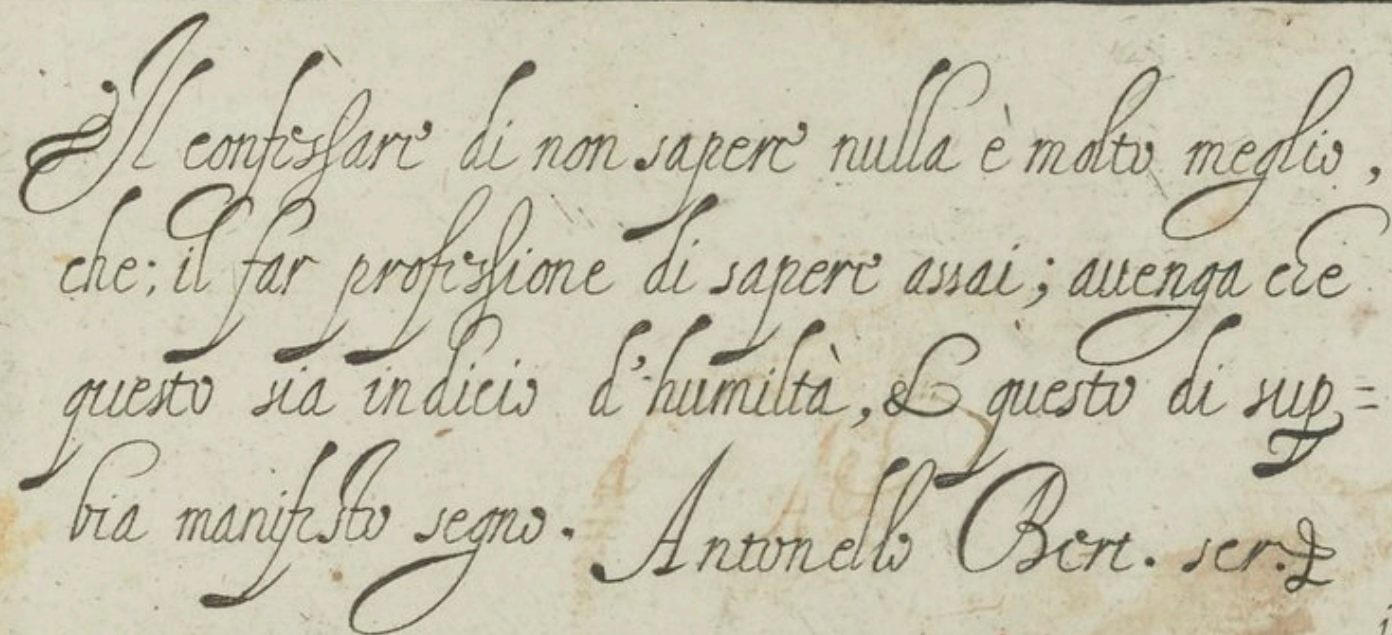 Il confessare di non sapere nulla è molto meglio,
che; il far professione di sapere assai; auenga che
questo sia indicio d'humiltà, & questo di sup=
bia manifesto segno. Antonello Bert. scr.